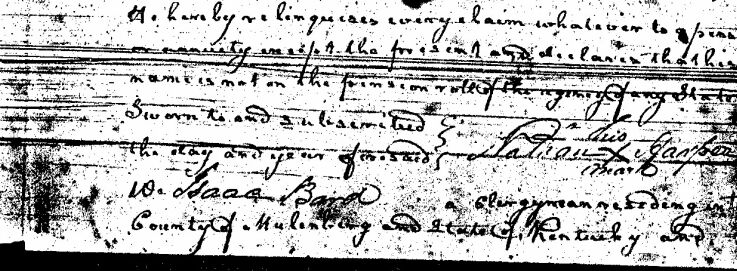 He hereby relinquises every claim whatever to a pens
or annuity except the present and declares that his
name is not on the pension roll of the agency of any State
Sworn to and subscribed
the day and year aforesaid
Nathan his
mark
We Isaac Bard a clergyman residing in
County of Mulenberg and State of Kentucky and